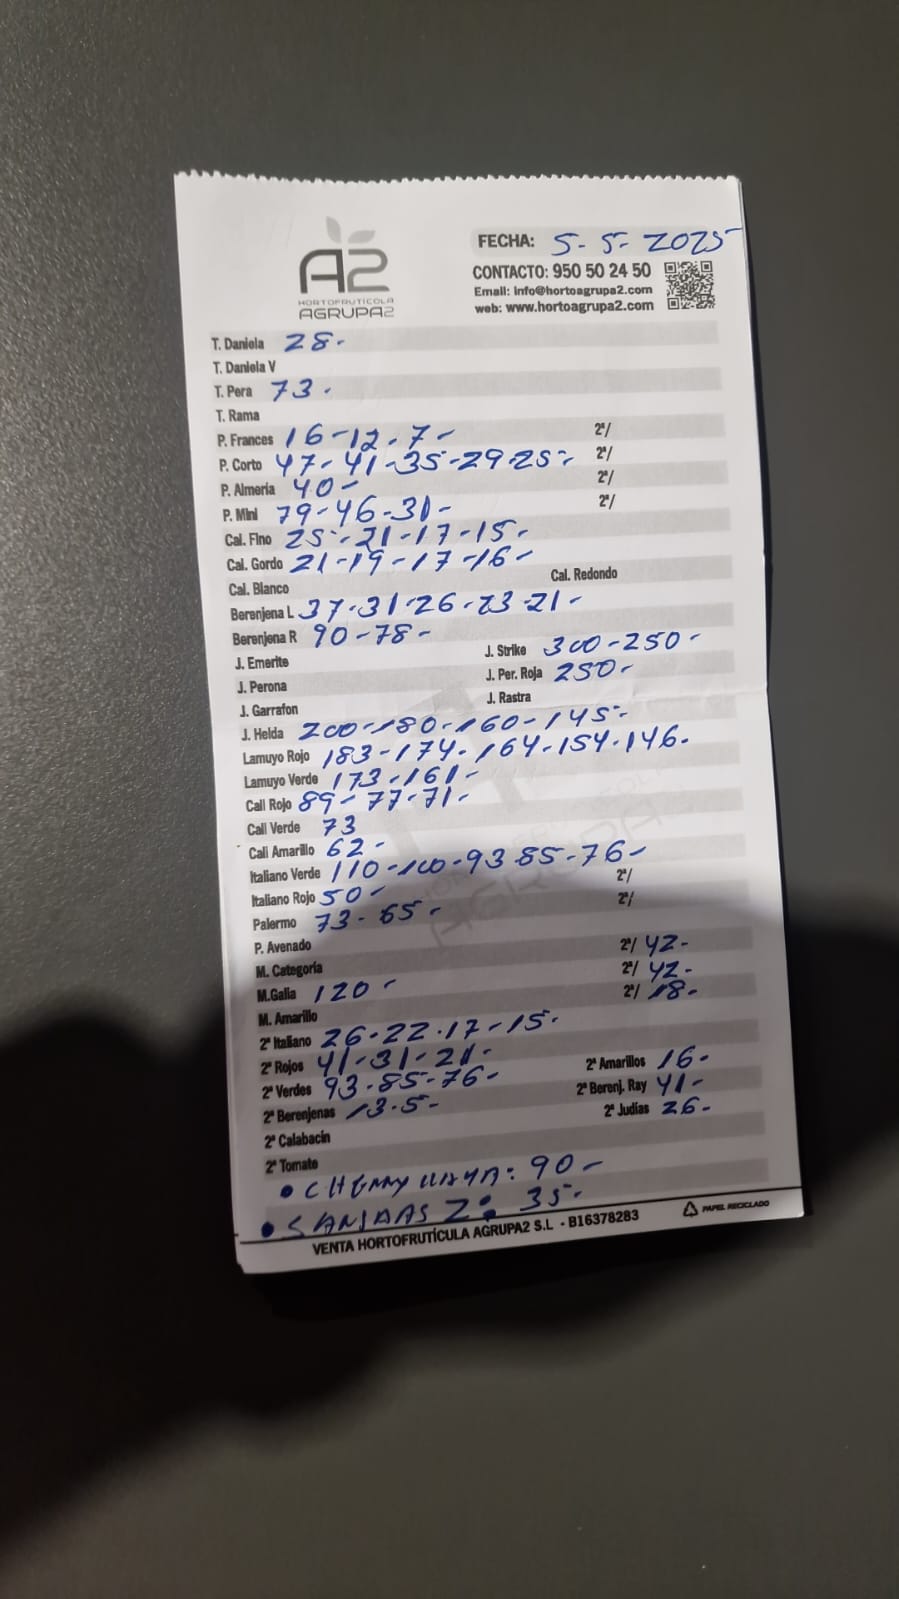 A2
HORTOFRUTÍCOLA
AGRUPA2
FECHA: 5-5-2025
CONTACTO: 950 50 24 50
Email: info@hortoagrupa2.com
web: www.hortoagrupa2.com
T. Daniela 28-
T. Daniela V
T. Pera 73.
T. Rama
P. Frances 16-12-7- 2ª/
P. Corto 47-41-35-29-25- 2ª/
P. Almería 40- 2ª/
P. Mini 79-46-31- 2ª/
Cal. Fino 25-21-17-15-
Cal. Gordo 21-19-17-16-
Cal. Blanco Cal. Redondo
Berenjena L 37-31-26-23-21-
Berenjena R 90-78-
J. Emerite J. Strike 300-250-
J. Perona J. Per. Roja 250-
J. Garrafon J. Rastra
J. Helda 200-180-160-145-
Lamuyo Rojo 183-174-164-154-146-
Lamuyo Verde 173-161-
Cali Rojo 89-77-71-
Cali Verde 73
Cali Amarillo 62-
Italiano Verde 110-100-93-85-76-
Italiano Rojo 50- 2ª/
Palermo 73-65- 2ª/
P. Avenado
M. Categoría 2ª/ 42-
M.Galia 120- 2ª/ 42-
M. Amarillo 2ª/ 18-
2ª Italiano 26-22-17-15-
2ª Rojos 41-31-21- 2ª Amarillos 16-
2ª Verdes 93-85-76- 2ª Berenj. Ray 41-
2ª Berenjenas 13-5- 2ª Judías 26-
2ª Calabacín
2ª Tomate
• CHERRY : 90-
• 2: 35-
VENTA HORTOFRUTÍCULA AGRUPA2 S.L - B16378283
PAPEL RECICLADO